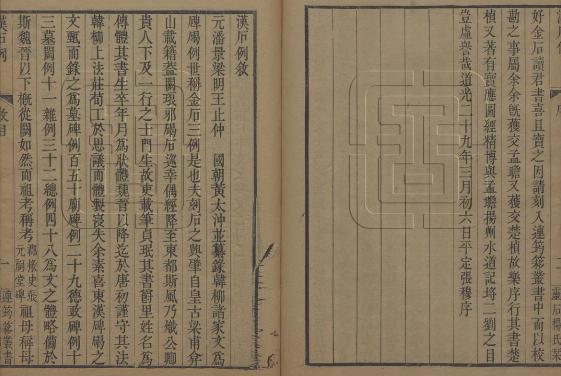 好金石讀君書喜且寶之因請刻入連筠簃叢書中而以校
勘之事屬余余旣獲交孟瞻又獲交楚楨故樂序行其書楚
楨又著有寶應圖經精博與孟瞻揚州水道記埒二劉之目
豈虛譽哉道光二十九年三月初六日平定張穆序
靈石楊氏栞
漢石例敘
元潘景梁明王止仲 國朝黃太沖並纂錄韓柳諸家文爲
碑碣例世稱金石三例是也夫刻石之興肇自皇古梁甫弇
山載籍盍闕琅邪碣石巡幸偶經降至東都斯風乃熾公卿
貴人下及一行之士門生故吏載筆貞珉其書爵里姓名爲
傳體其書生卒年月爲狀體魏晉以降迄於唐初謹守其法
韓柳上法莊荀工於思議而體製寖失余素喜東漢碑碣之
文輒而錄之爲墓碑例百五十廟碑例二十九德政碑例十
三墓闕例十一雜例三十二總例四十八爲文之體略備於
斯魏晉以下槪從闕如然而祖考稱考
祖母稱母
漢石例
敘目
一
連筠簃叢書